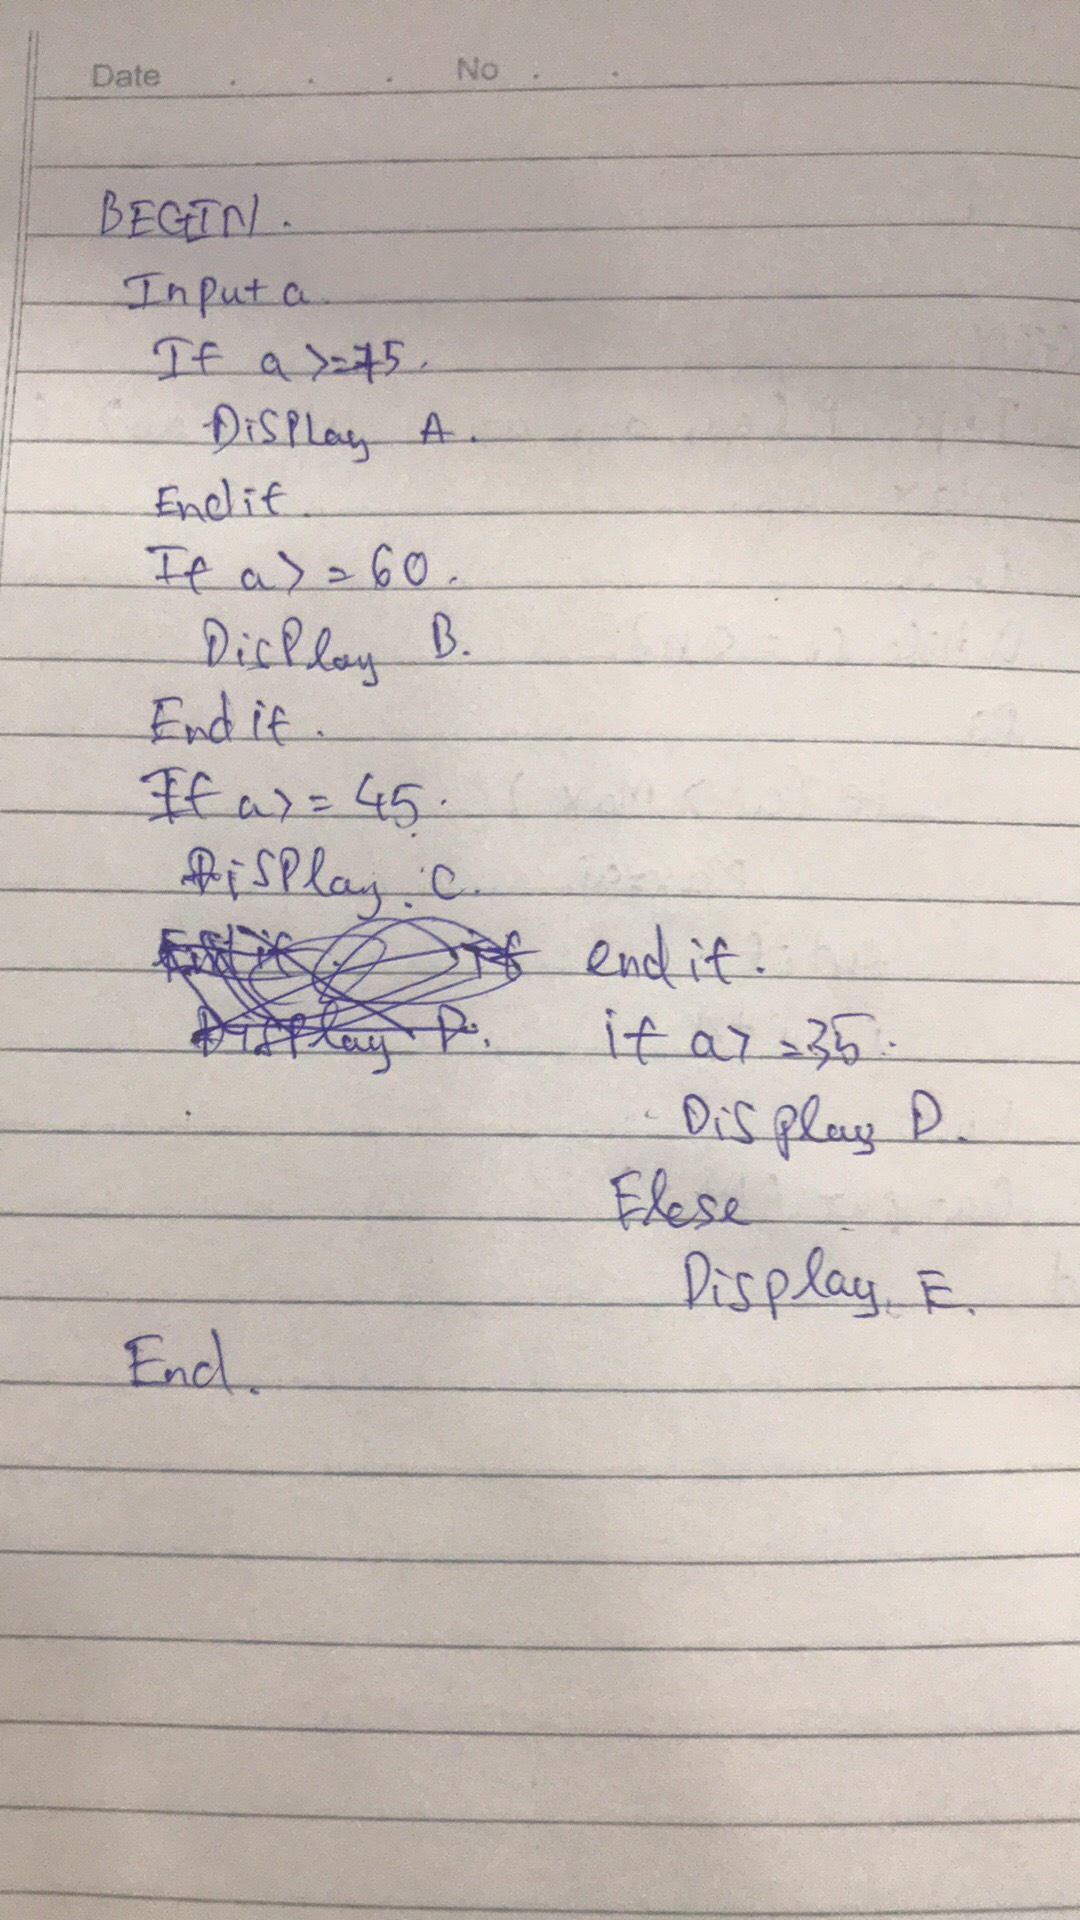 Date . . . No . .
BEGIN.
Input a
If a >=75.
Display A.
Endif.
If a>=60.
Display B.
End if.
If a>= 45.
Display. C.
End if. if
Display D.
end if.
if a> =35.
Display D.
Elese
Display. E.
End.